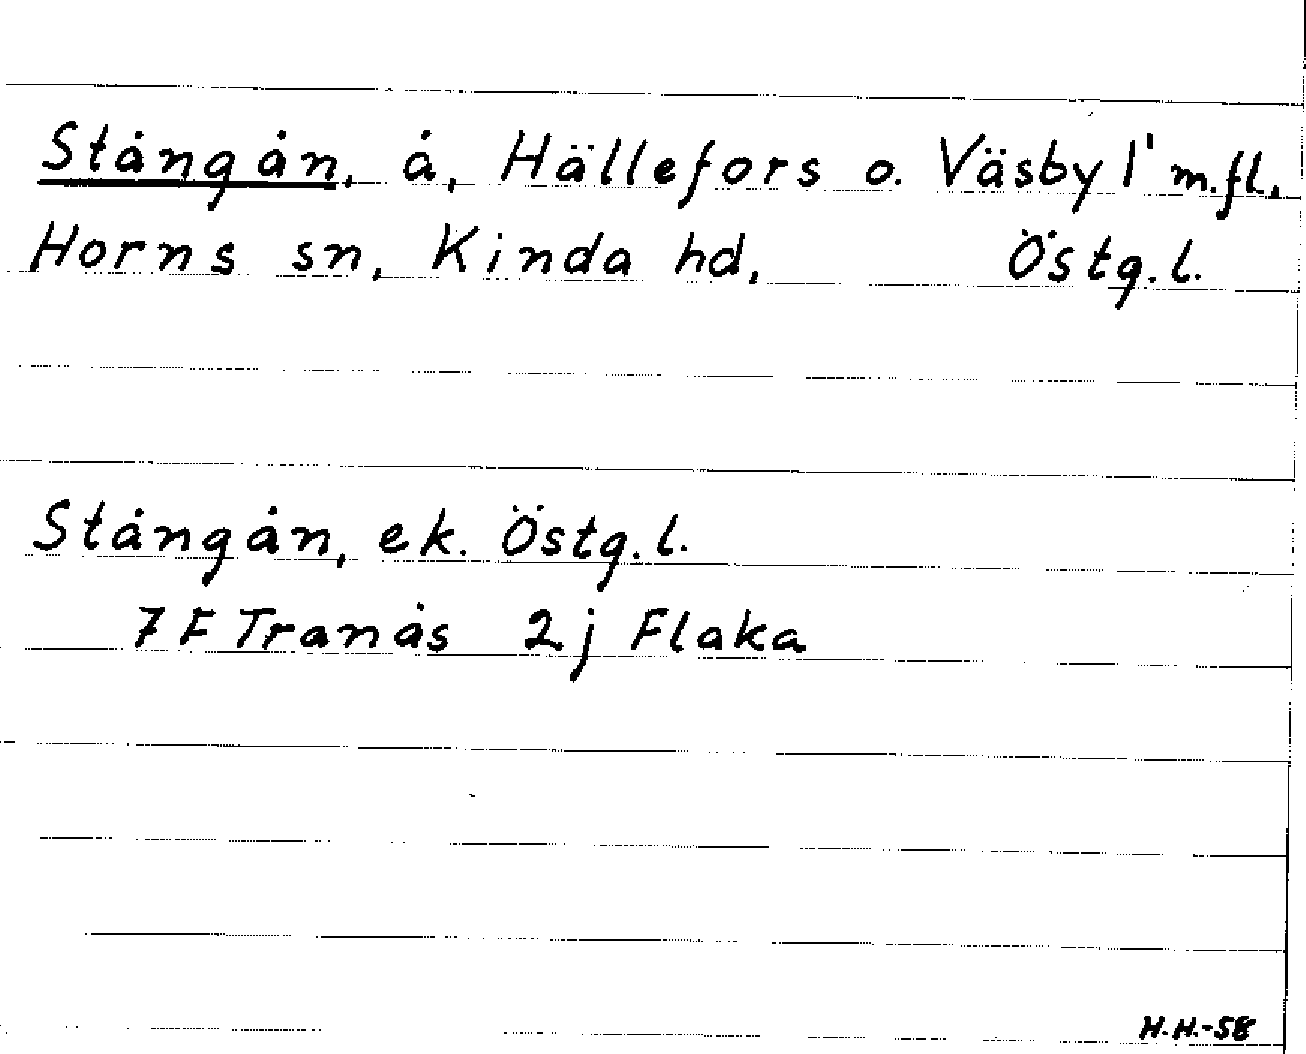 Stångån, å, Hällefors o. Väsby 1' m.fl.
Horns sn, Kinda hd, Östg.l.
Stångån, ek. Östg.l.
7F Tranås 2j Flaka
H.H.-58